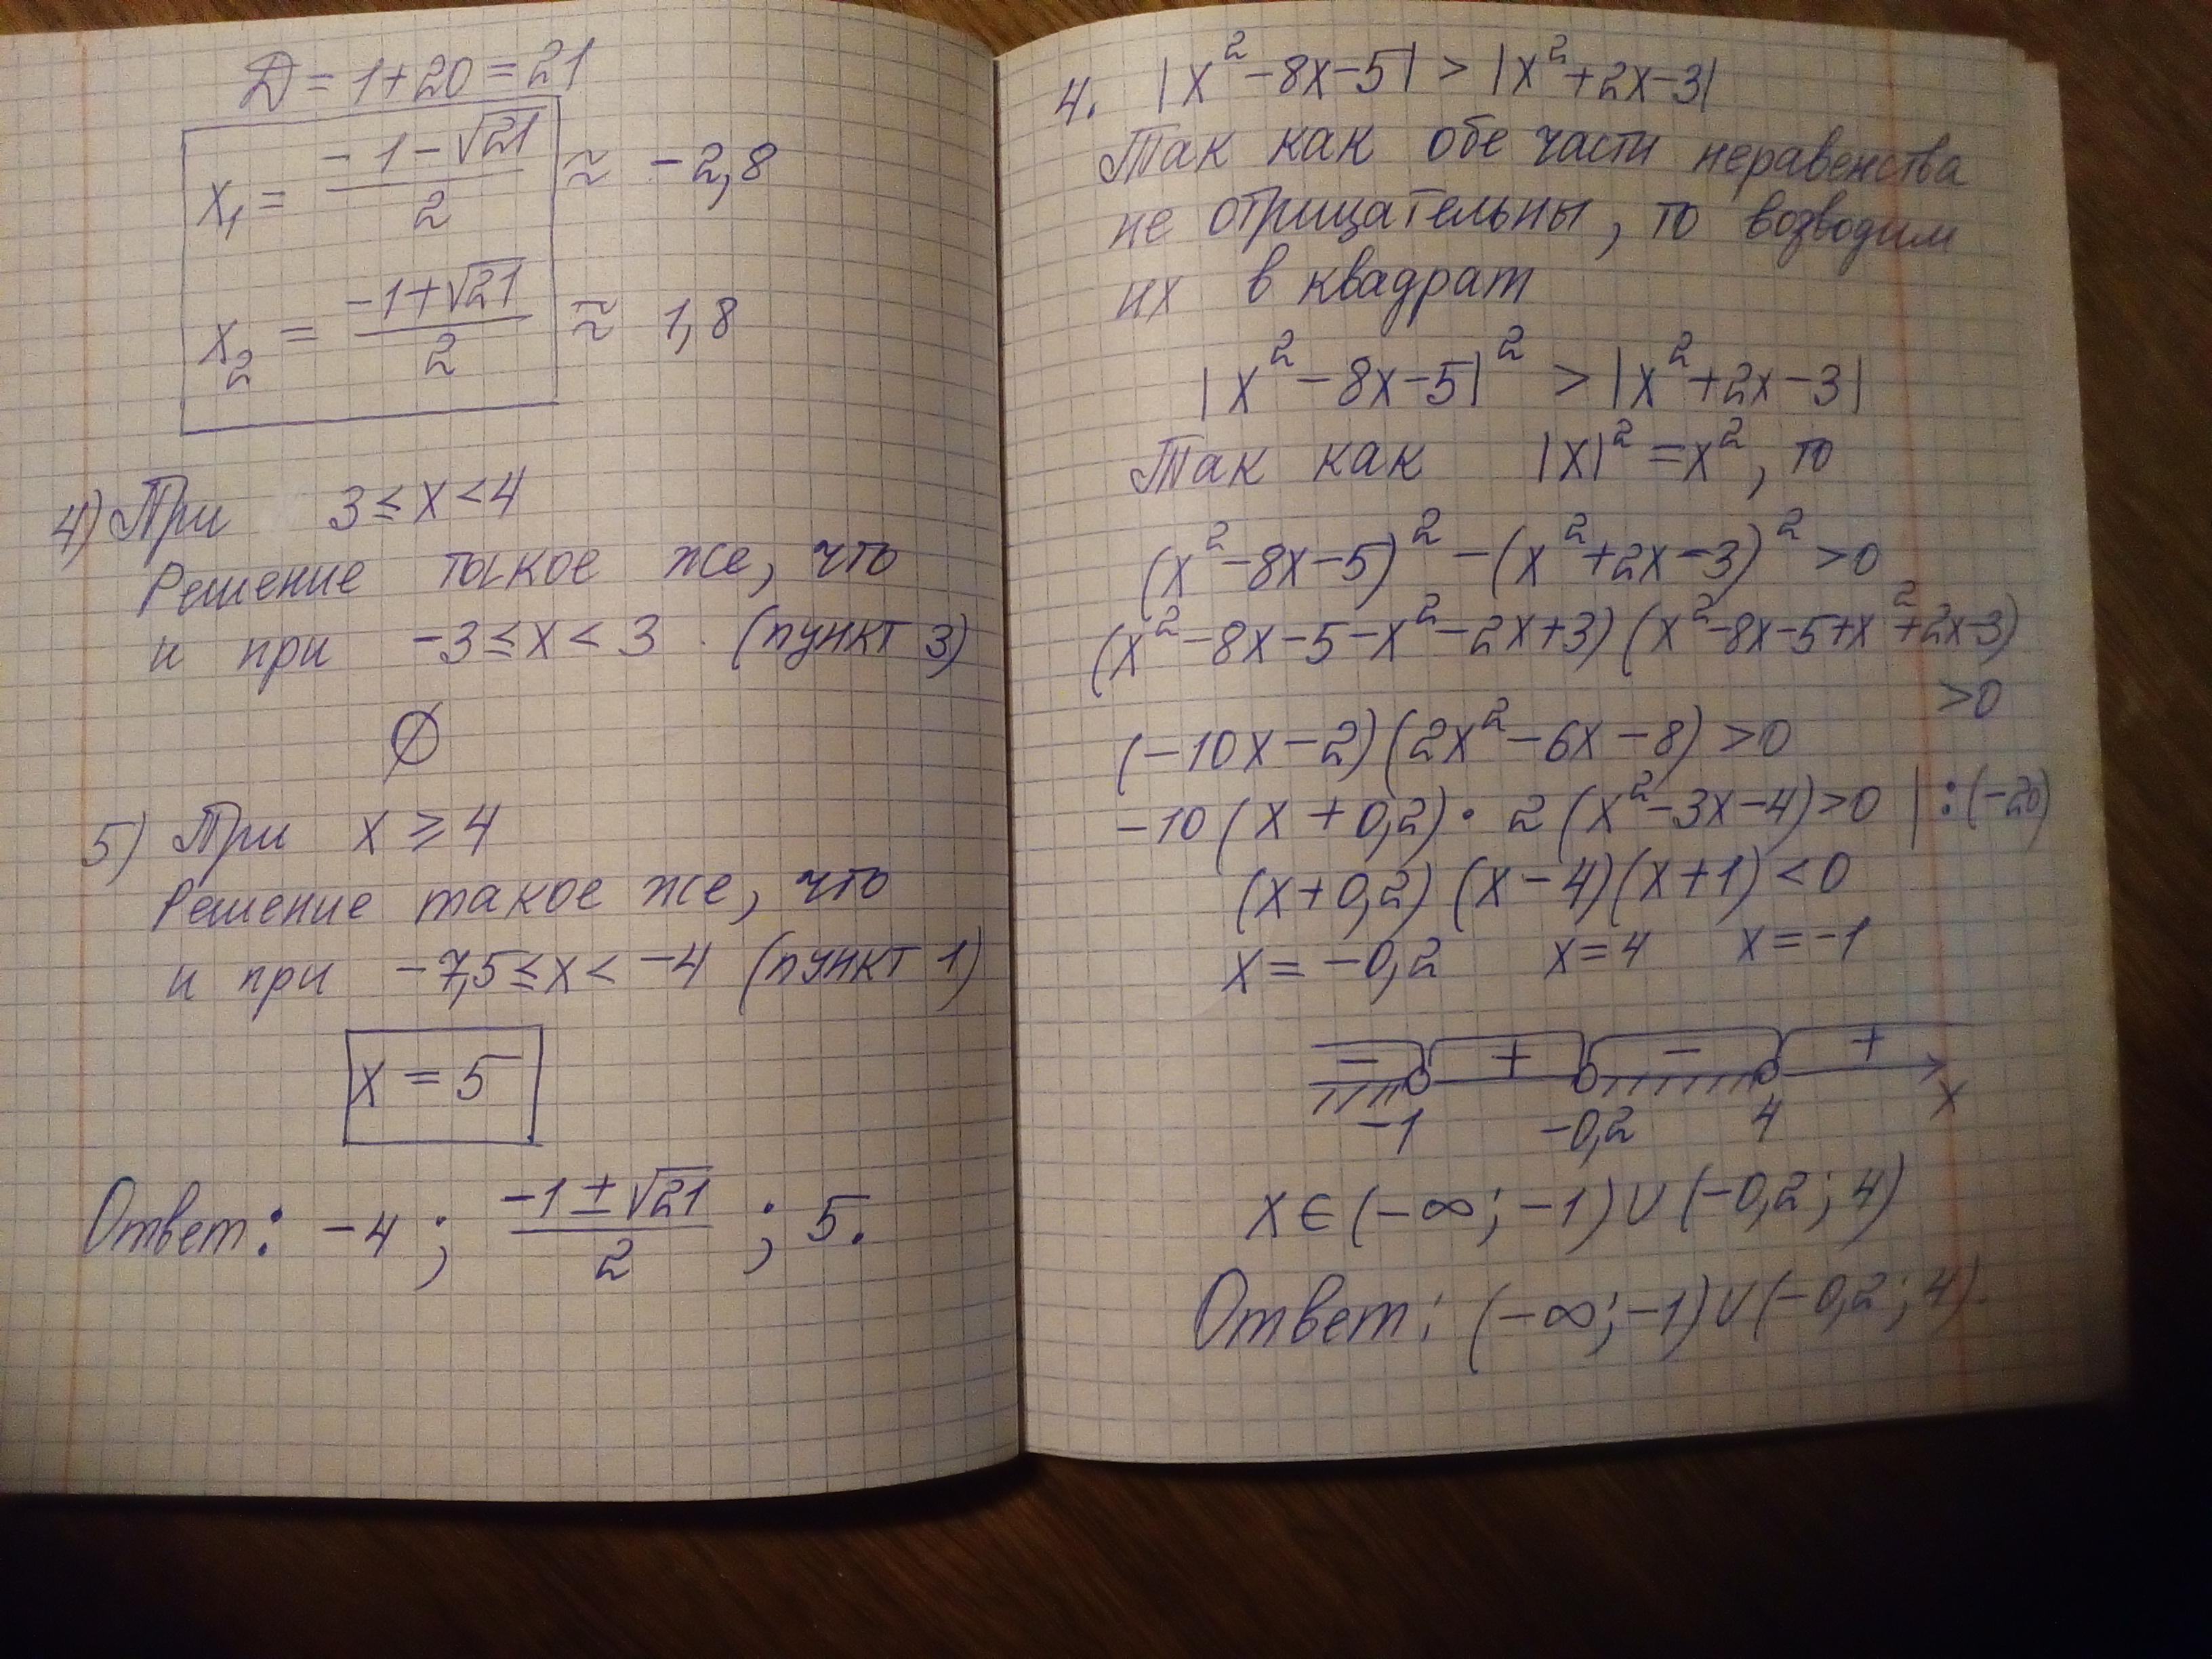 D = 1+20 = 21
x₁ = (-1-√21)/2 ≈ -2,8
x₂ = (-1+√21)/2 ≈ 1,8
4) При 3 ≤ x < 4
Решение такое же, что
и при -3 ≤ x < 3. (пункт 3)
∅
5) При x ≥ 4
Решение такое же, что
и при -7,5 ≤ x < -4 (пункт 1)
x = 5
Ответ: -4; (-1±√21)/2; 5.
4. |x²-8x-5| > |x²+2x-3|
Так как обе части неравенства
не отрицательны, то возводим
их в квадрат
|x²-8x-5|² > |x²+2x-3|
Так как |x|² = x², то
(x²-8x-5)² - (x²+2x-3)² > 0
(x²-8x-5-x²-2x+3)(x²-8x-5+x²+2x-3)
>0
(-10x-2)(2x²-6x-8) > 0
-10(x+0,2)·2(x²-3x-4)>0 |:(-20)
(x+0,2)(x-4)(x+1)<0
x = -0,2 x = 4 x = -1
- + - +
-1 -0,2 4 x
x∈(-∞;-1)∪(-0,2;4)
Ответ: (-∞;-1)∪(-0,2;4).